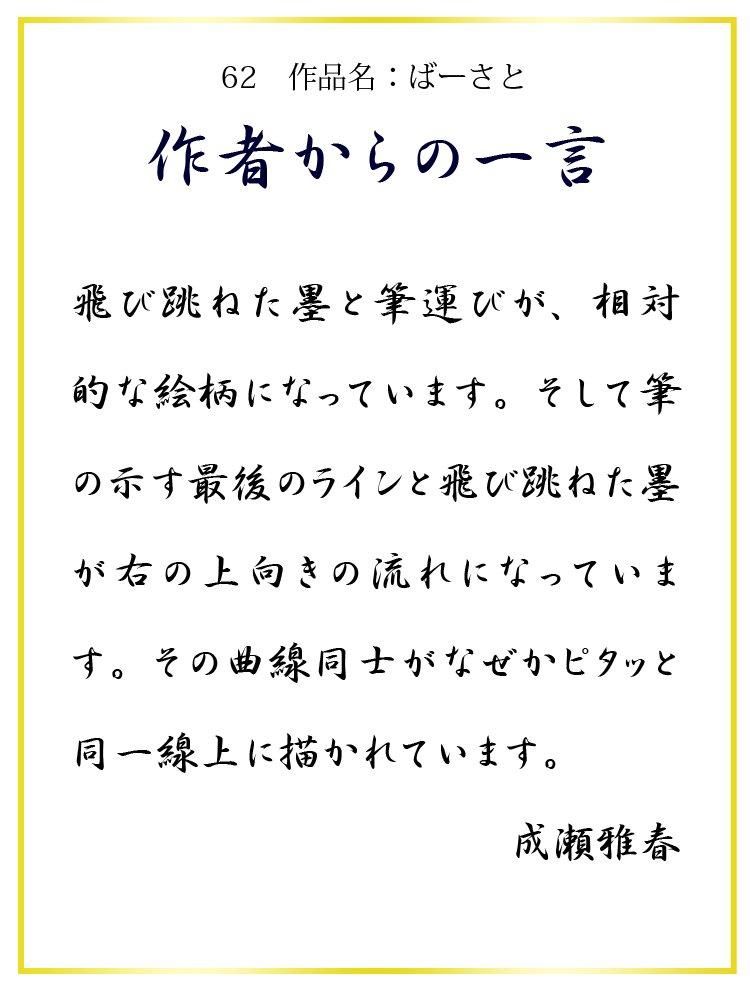 62　作品名：ばーさと
作者からの一言
飛び跳ねた墨と筆運びが、相対
的な絵柄になっています。そして筆
の示す最後のラインと飛び跳ねた墨
が右の上向きの流れになっていま
す。その曲線同士がなぜかピタッと
同一線上に描かれています。
成瀬雅春